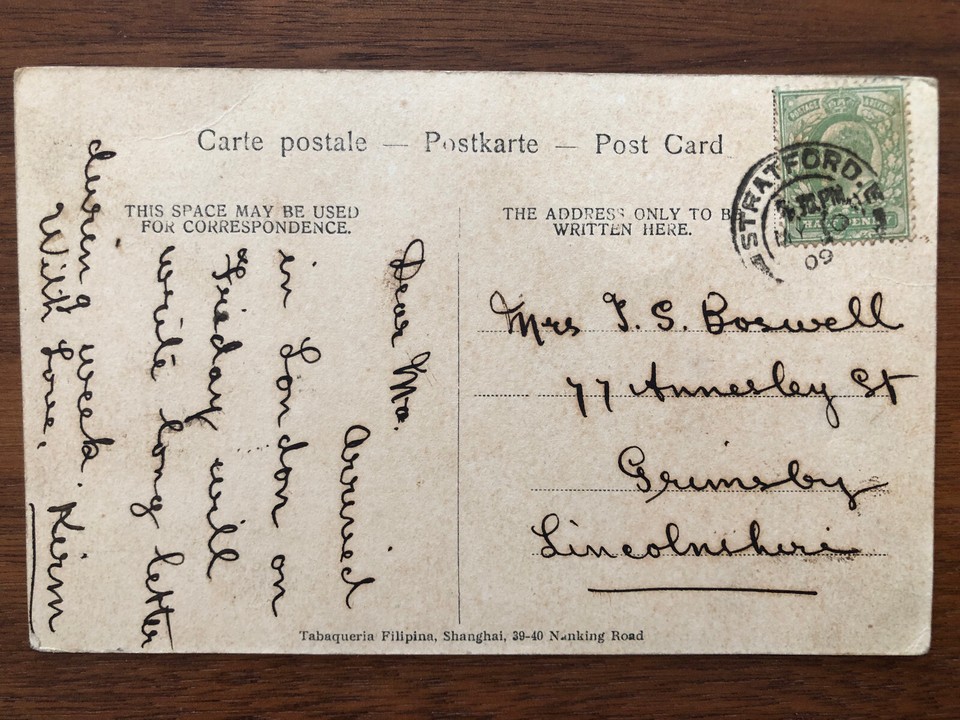 Carte postale — Postkarte — Post Card
THIS SPACE MAY BE USED
FOR CORRESPONDENCE.
Dear Ma.
Arrived
in London on
Friday will
write long letter
during week.
With Love.
THE ADDRESS ONLY TO BE
WRITTEN HERE.
STRATFORD. E
MY 10
09
POSTAGE
Mrs T. S. Boswell
77 Annesley St
Grimsby
Lincolnshire
Tabaqueria Filipina, Shanghai, 39-40 Nanking Road